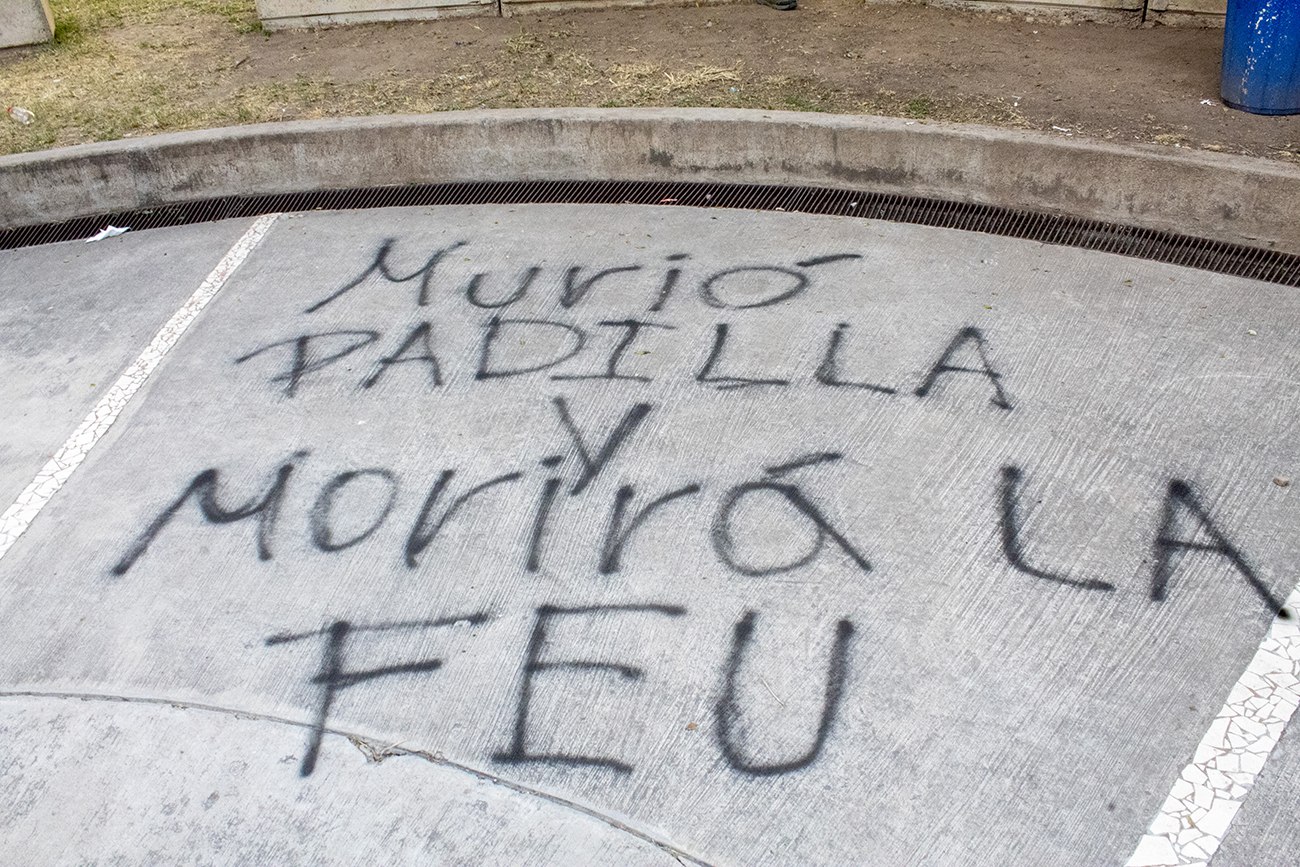 Murió
PADILLA
y
Morirá LA
FEU